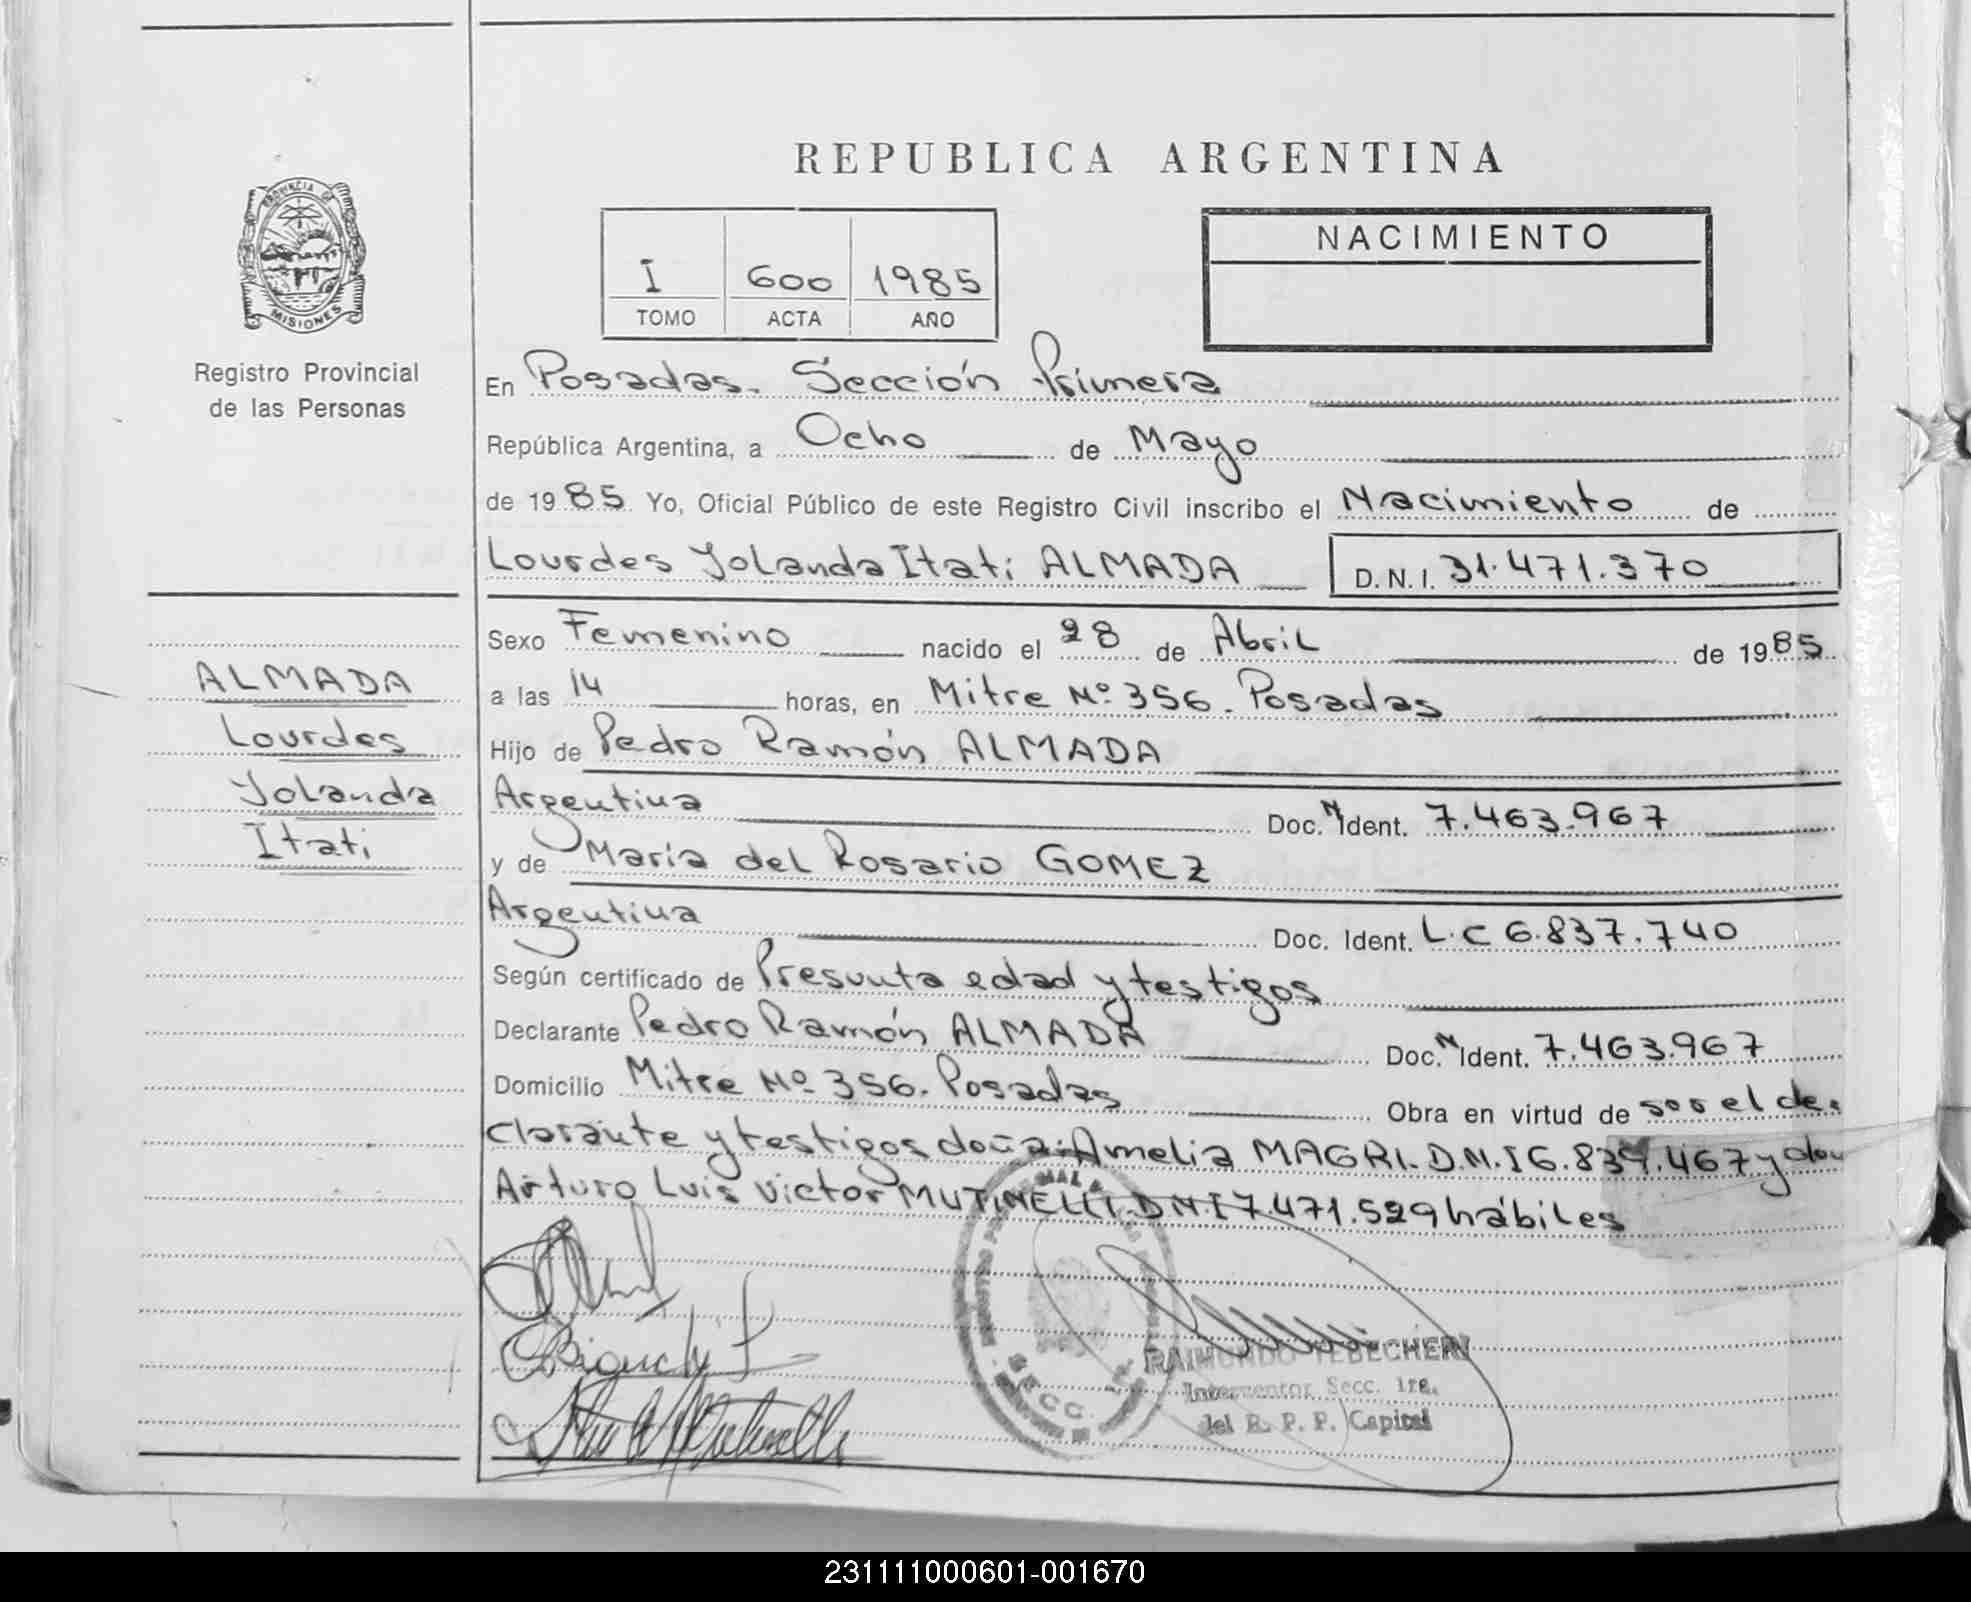 REPUBLICA ARGENTINA
PROVINCIA DE
MISIONES
Registro Provincial
de las Personas
I 600 1985
TOMO ACTA AÑO
NACIMIENTO
En Posadas. Sección Primera
República Argentina, a Ocho de Mayo
de 1985 Yo, Oficial Público de este Registro Civil inscribo el Nacimiento de
Lourdes Yolanda Itati ALMADA D.N.I. 31.471.370
Sexo Femenino nacido el 28 de Abril de 1985
a las 14 horas, en Mitre Nº 356. Posadas
Hijo de Pedro Ramón ALMADA
Argentina Doc. Ident. 7.463.967
y de María del Rosario GOMEZ
Argentina Doc. Ident. L.C 6.837.740
Según certificado de Presunta edad y testigos
Declarante Pedro Ramón ALMADA Doc. Ident. 7.463.967
Domicilio Mitre Nº 356. Posadas Obra en virtud de ser el de-
clarante y testigos doña: Amelia MAGRI. D.N.I 6.837.467 y don
Arturo Luis Victor MUTINELLI. D.N.I 7.471.529 hábiles
ALMADA
Lourdes
Yolanda
Itati
SECC.
RAIMUNDO TEBECHERI
Interventor Secc. 1ra.
del R. P. P. Capital
231111000601-001670